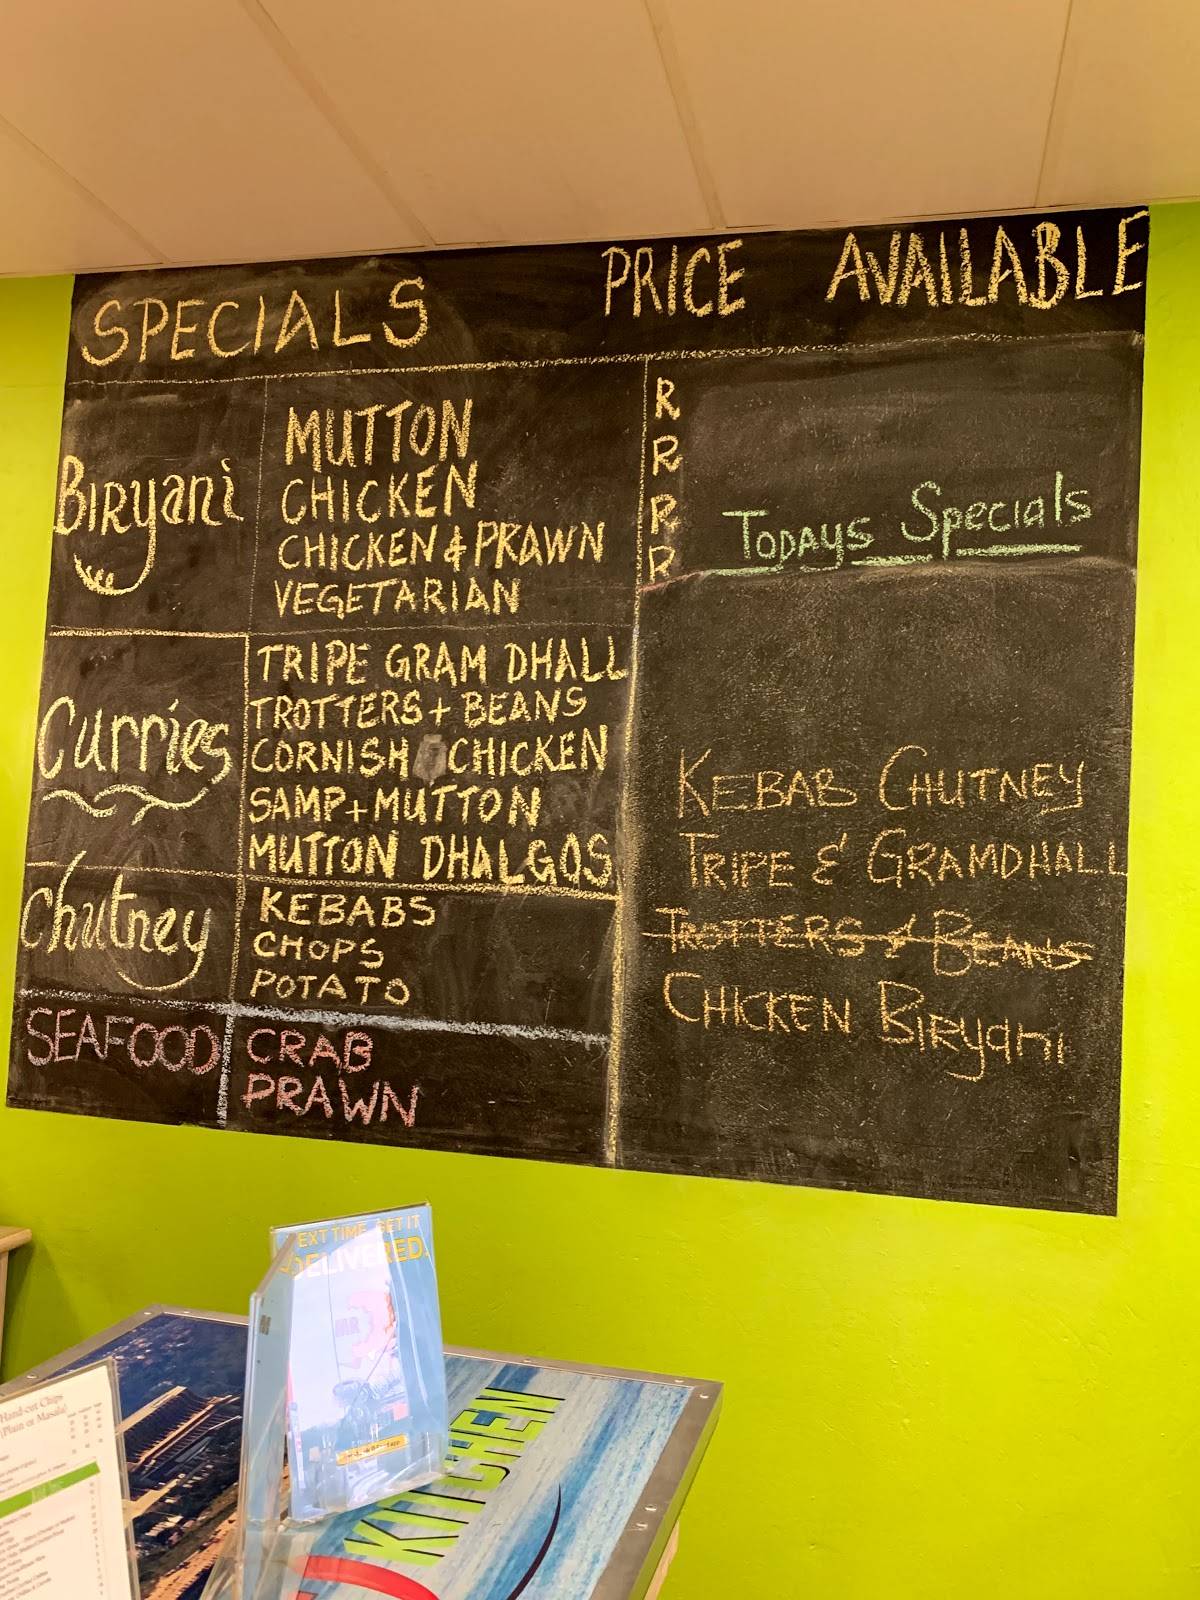 SPECIALS PRICE AVAILABLE
Biryani
MUTTON R
CHICKEN R
CHICKEN & PRAWN R
VEGETARIAN R
Curries
TRIPE GRAM DHALL
TROTTERS + BEANS
CORNISH CHICKEN
SAMP + MUTTON
MUTTON DHALGOS
Chutney
KEBABS
CHOPS
POTATO
SEAFOOD
CRAB
PRAWN
Todays Specials
KEBAB CHUTNEY
TRIPE & GRAMDHALL
TROTTERS & BEANS
CHICKEN BIRYANI
NEXT TIME, GET IT
DELIVERED.
MR
KITCHEN
Hand-cut Chips
(Plain or Masala)